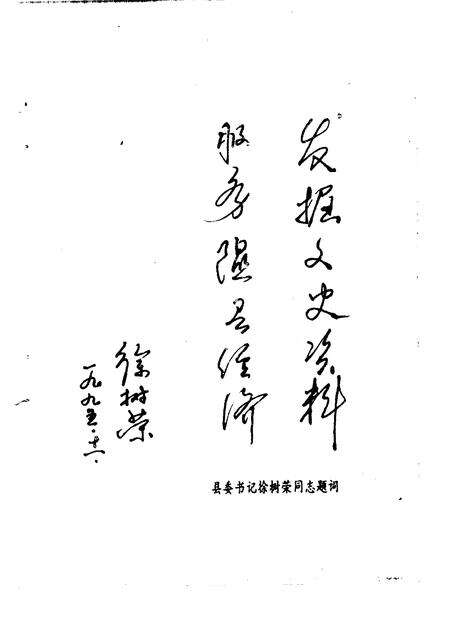 发掘文史资料
服务隰县经济
徐树荣
一九九五·十一·
县委书记徐树荣同志题词